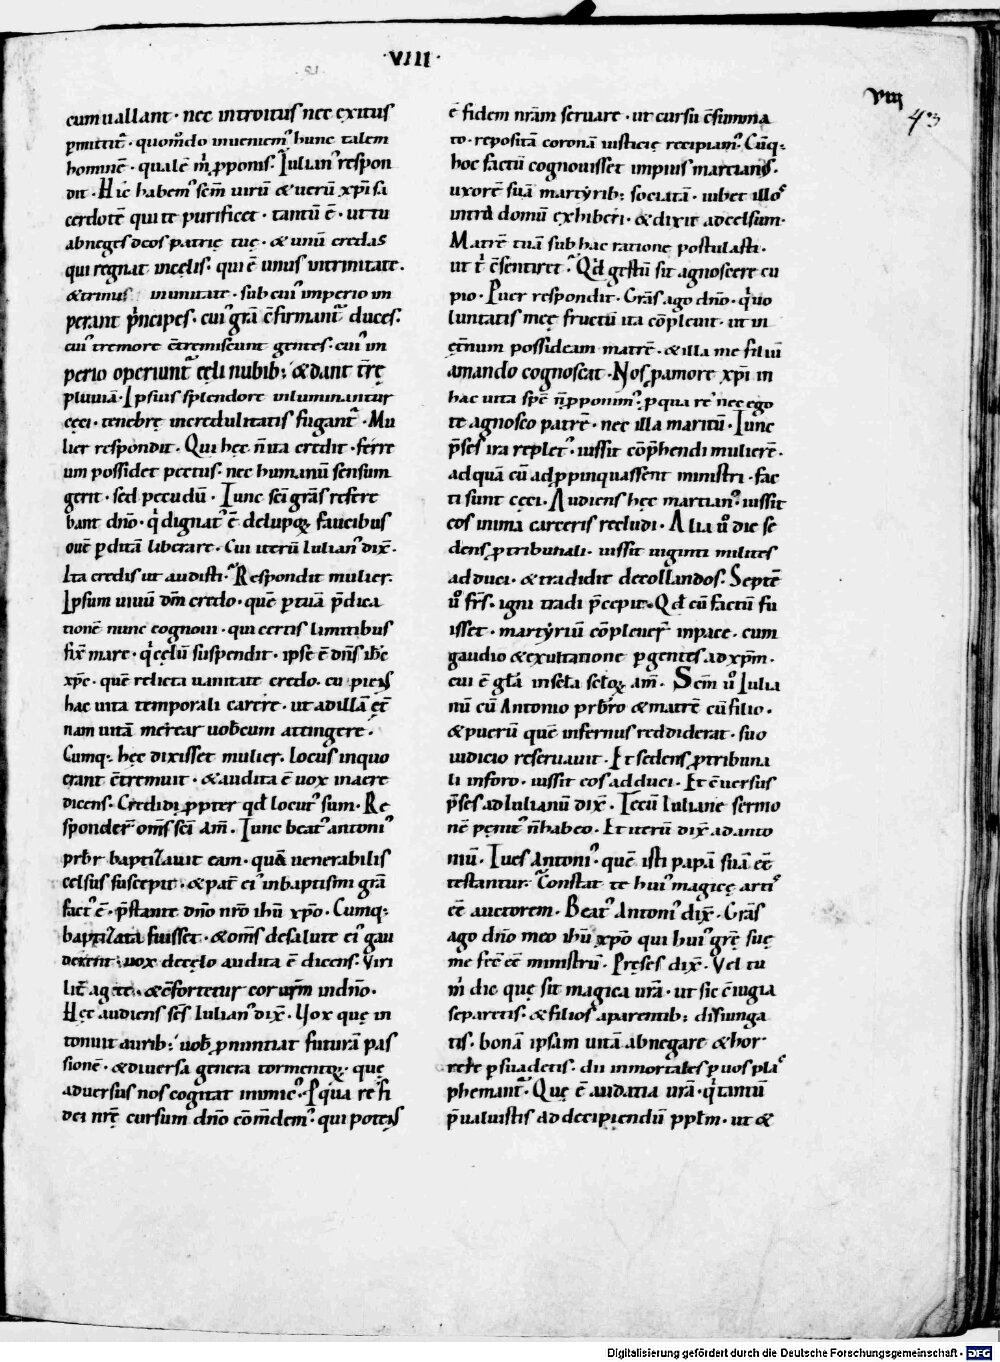 ·VIII·
VIII
43
cumuallant · nec introitus nec exitus
ꝑmittit᷑ · quom̊do inueniem᾿ hunc talem
hominē · qualē m̍ ꝓponis · Iulian᾿ respon
dit · Hic habem᾿ scm̄ uirū & uerū xp̄i sa
cerdotē qui te purificet · tantū ē · ut tu
abneges deos patrię tuę · & unū credas
qui regnat incęlis · qui ē unus intrinitate ·
& trinus inunitate · sub cui᾿ imperio im
perant p̍ncipes · cui᾿ grā c̄firmant᷑ duces ·
cui᾿ tremore c̄tremiscunt gentes · cui᾿ im
perio operiunt᷑ cęli nubib; & dant tr̄ę
pluuiā · Ipsius splendore inluminantur
cęci · tenebrę incredulitatis fugant᷑ · Mu
lier respondit · Qui hęc n̄ ita credit · ferre
um possidet pectus · nec humanū sensum
gerit · sed pecudū · Tunc sc̄i grās refere
bant dn̄o · q̍ dignat᾿ ē deluporꝝ faucibus
ouē ꝑditā liberare · Cui iterū Iulian᾿ dix̄ ·
Ita credis ut audisti · Respondit mulier ·
Ipsum uiuū dm̄ credo · quē ꝑtuā p̄dica
tionē nunc cognoui · qui certis limitibus
fix̄ mare · q̍ cęlū suspendit · ipse ē dn̄s ih̄c
xp̄c · quē relicta uanitate credo · cupiens
hac uita temporali carere · ut adillā ęt̄
nam uitā merear uob̄cum attingere ·
Cumq; hęc dixisset mulier · locus inquo
erant c̄tremuit · & audita ē uox inaere
dicens · Credidi ꝓpter qd̄ locut᾿ sum · Re
sponder̄ oms̄ sc̄i am̄ · Tunc beat᾿ antoni᾿
prb̄r baptizauit eam · quā uenerabilis
celsus suscepit · & pat̄ ei᾿ inbaptismi grā
fact᾿ ē · p̄stante dn̄o nr̄o ih̄u xp̄o · Cumq;
baptizata fuisset · & oms̄ desalute ei᾿ gau
derent · uox decęlo audita ē dicens · Viri
lit̄ agite · & c̄fortetur cor ur̄m indn̄o ·
Hęc audiens sc̄s Iulian᾿ dix̄ · Vox quę in
tonuit aurib; uob̄ ꝓnuntiat futurā pas
sionē · & diuersa genera tormentoꝝ · quę
aduersus nos cogitat inimic᾿ · Ꝓ qua re fi
dei nr̄ę cursum dn̄o c̄om̄dem᾿ · qui potens
ē fidem nrām seruare · ut cursu c̄summa
to · repositā coronā iusticię recipiam᾿ · Cūq;
hoc factū cognouisset impius martian᾿ ·
uxorē suā martyrib; sociatā · iubet illos
intra domū exhiberi · & dixit adcelsum ·
Matrē tuā sub hac ratione postulasti ·
ut t̍ c̄sentiret · Qd̄ gestū sit agnoscere cu
pio · Puer respondit · Grās ago dn̄o · q̍ uo
luntatis meę fructū ita cōpleuit · ut in
ęt̄num possideam matrē · & illa me filiū
amando cognoscat · Nos ꝓamore xp̄i in
hac uita spē n̄ ꝓponim᾿ · ꝓqua re nec ego
te agnosco patrē · nec illa maritū · Tunc
p̄ses ira replet᾿ · iussit cōp̄hendi mulierē ·
adquā cū adꝓpinquassent ministri · fac
ti sunt cęci · Audiens hęc martian᾿ · iussit
eos inima carceris recludi · Alia u̍o die se
dens ꝓtribunali · iussit uiginti milites
adduci · & tradidit decollandos · Septē
u̍o fr̄s · igni tradi p̄cepit · Qd̄ cū factū fu
isset · martyriū cōpleuer̄ inpace · cum
gaudio & exultatione ꝑgentes ad xp̄m ·
cui ē gl̄a insecl̄a secl̄oꝝ am̄ · Scm̄ u̍o Iulia
nū cū Antonio prb̄ro & matrē cū filio ·
& puerū quē infernus reddiderat · suo
iudicio reseruauit · Et sedens ꝓtribuna
li inforo · iussit eos adduci · Et c̄uersus
p̄ses ad Iulianū dix̄ · Tecū Iuliane sermo
nē penit᾿ n̄ habeo · Et iterū dix̄ ad anto
niū · Tu es Antoni᾿ · quē isti papā suā eē
testantur · Constat te hui᾿ magicę arti᾿
eē auctorem · Beat᾿ Antoni᾿ dix̄ · Grās
ago dn̄o meo ih̄u xp̄o qui hui᾿ grę̄ suę
me fec̄ eē ministrū · Preses dix̄ · Vel tu
m̍ dic quę sit magica urā · ut sic c̄iugia
separetis · & filios aparentib; disiunga
tis · bonā ipsam uitā abnegare & hor
rere ꝑsuadetis · dii inmortales ꝑ uos plas
phemant᷑ · Quę ē audatia urā · q̍ tantū
p̄ualuistis addecipiendū ppl̄m · ut &
Digitalisierung gefördert durch die Deutsche Forschungsgemeinschaft - DFG